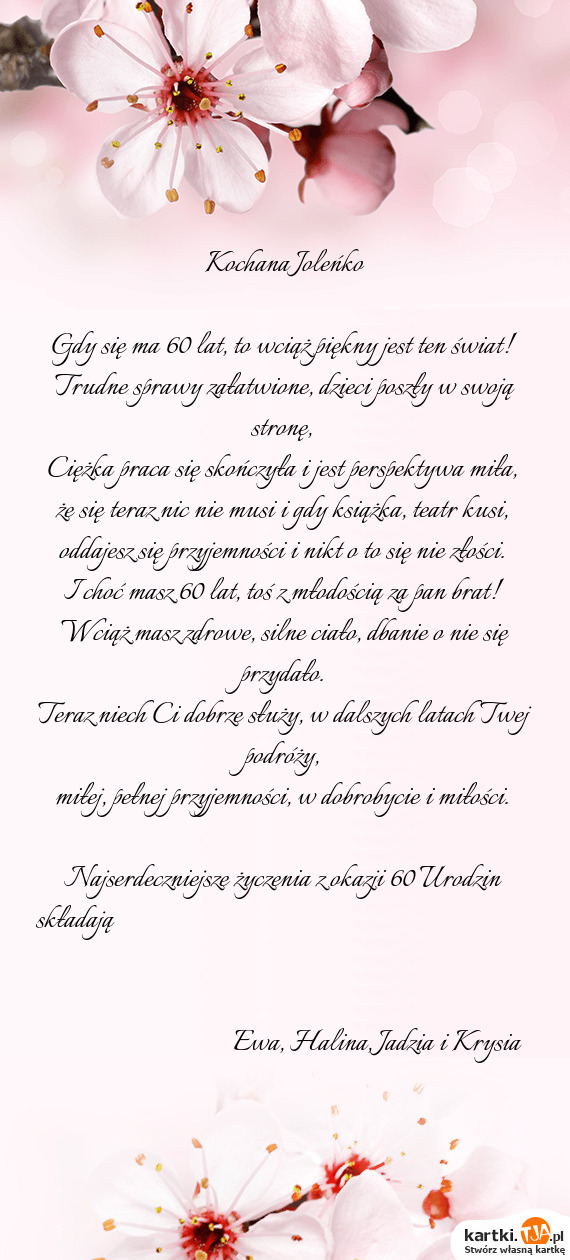 Kochana Joleńko
Gdy się ma 60 lat, to wciąż piękny jest ten świat!
Trudne sprawy załatwione, dzieci poszły w swoją
stronę,
Ciężka praca się skończyła i jest perspektywa miła,
że się teraz nic nie musi i gdy książka, teatr kusi,
oddajesz się przyjemności i nikt o to się nie złości.
I choć masz 60 lat, toś z młodością za pan brat!
Wciąż masz zdrowe, silne ciało, dbanie o nie się
przydało.
Teraz niech Ci dobrze służy, w dalszych latach Twej
podróży,
miłej, pełnej przyjemności, w dobrobycie i miłości.
Najserdeczniejsze życzenia z okazji 60 Urodzin
składają
Ewa, Halina, Jadzia i Krysia
kartki.TJA.pl
Stwórz własną kartkę